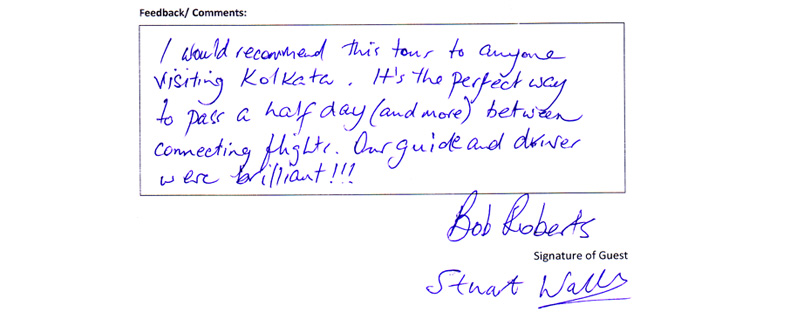 Feedback/ Comments:
I would recommend this tour to anyone
visiting Kolkata. It's the perfect way
to pass a half day (and more) between
connecting flights. Our guide and driver
were brilliant!!!
Bob Roberts
Signature of Guest
Stuart Walls